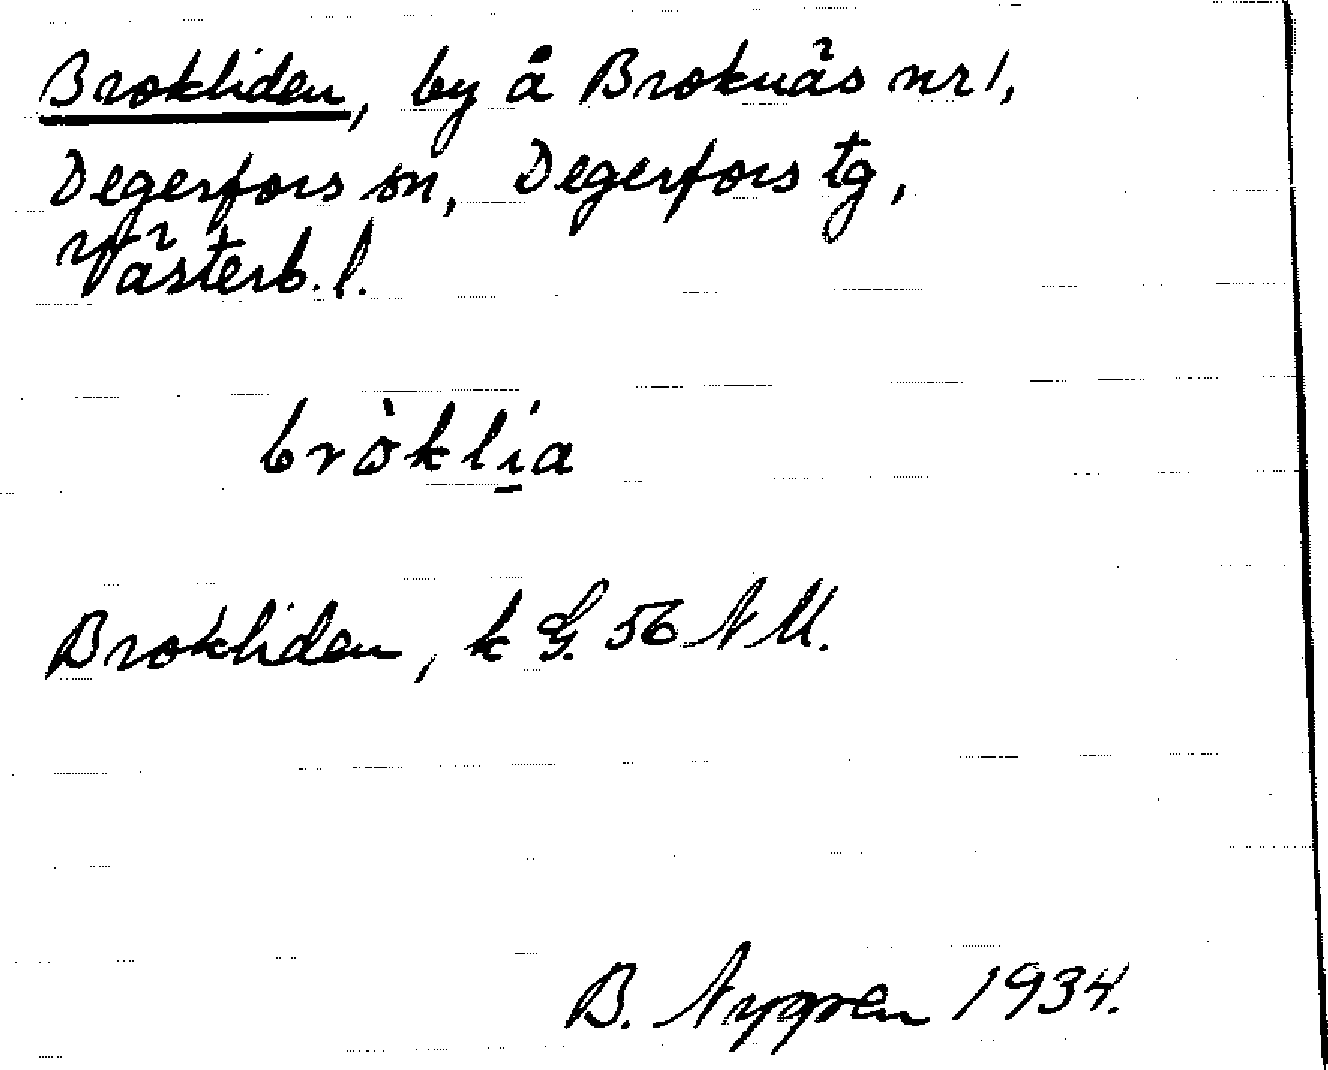 Brokliden, by å Broknäs nr 1,
Degerfors sn, Degerfors tg,
Västerb. l.
bròklía̱
Brokliden, k G. 56 NU.
B. Nygren 1934.